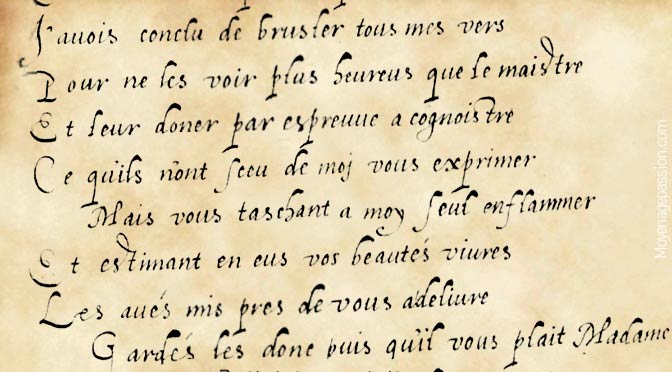 J'avois conclu de brusler tous mes vers
Pour ne les voir plus heureus que le maistre
Et leur doner par espreuue a cognoistre
Ce qu'ils n'ont sceu de moj vous exprimer
Mais vous taschant a moy seul enflammer
Et estimant en eus vos beautés viures
Les aués mis pres de vous a deliure
Gardés les donc puis qu'il vous plait Madame
Moyenagepassion.com